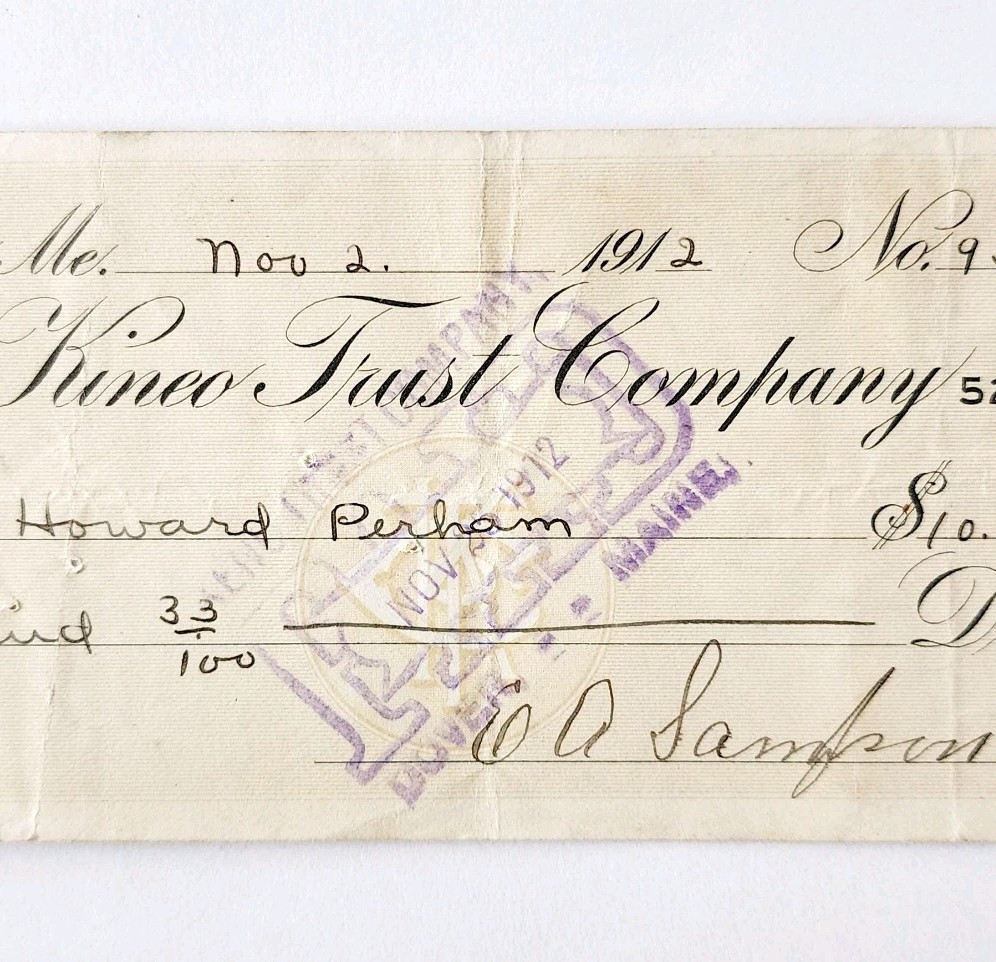 Me. Nov 2. 1912 No. 9
Kineo Trust Company 52
Howard Perham $10.
and 33/100 D
E A Sampson
TRUST COMPANY
NOV 1912
DOVER MAINE